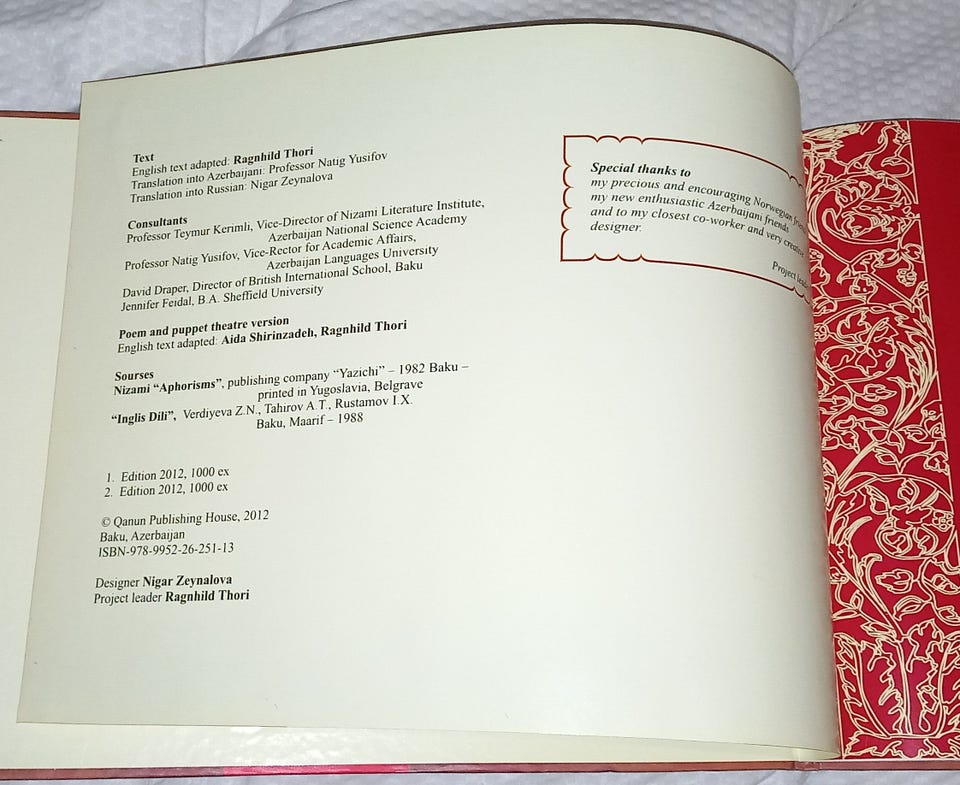 Text
English text adapted: Ragnhild Thori
Translation into Azerbaijani: Professor Natig Yusifov
Translation into Russian: Nigar Zeynalova
Consultants
Professor Teymur Kerimli, Vice-Director of Nizami Literature Institute,
Azerbaijan National Science Academy
Professor Natig Yusifov, Vice-Rector for Academic Affairs,
Azerbaijan Languages University
David Draper, Director of British International School, Baku
Jennifer Feidal, B.A. Sheffield University
Poem and puppet theatre version
English text adapted: Aida Shirinzadeh, Ragnhild Thori
Sourses
Nizami “Aphorisms”, publishing company “Yazichi” – 1982 Baku –
printed in Yugoslavia, Belgrave
“Inglis Dili”, Verdiyeva Z.N., Tahirov A.T., Rustamov I.X.
Baku, Maarif – 1988
1. Edition 2012, 1000 ex
2. Edition 2012, 1000 ex
© Qanun Publishing House, 2012
Baku, Azerbaijan
ISBN-978-9952-26-251-13
Designer Nigar Zeynalova
Project leader Ragnhild Thori
Special thanks to
my precious and encouraging Norwegian
my new enthusiastic Azerbaijani friends
and to my closest co-worker and very creative
designer.
Project